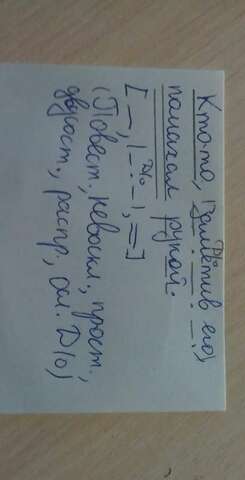 Кто-то, |заметив его|
Д/о
памагал рукой.
[—, |-.-|, =]
Д/о
(Повест., невоскл., прост.,
двусост., распр., ол. Д/о)